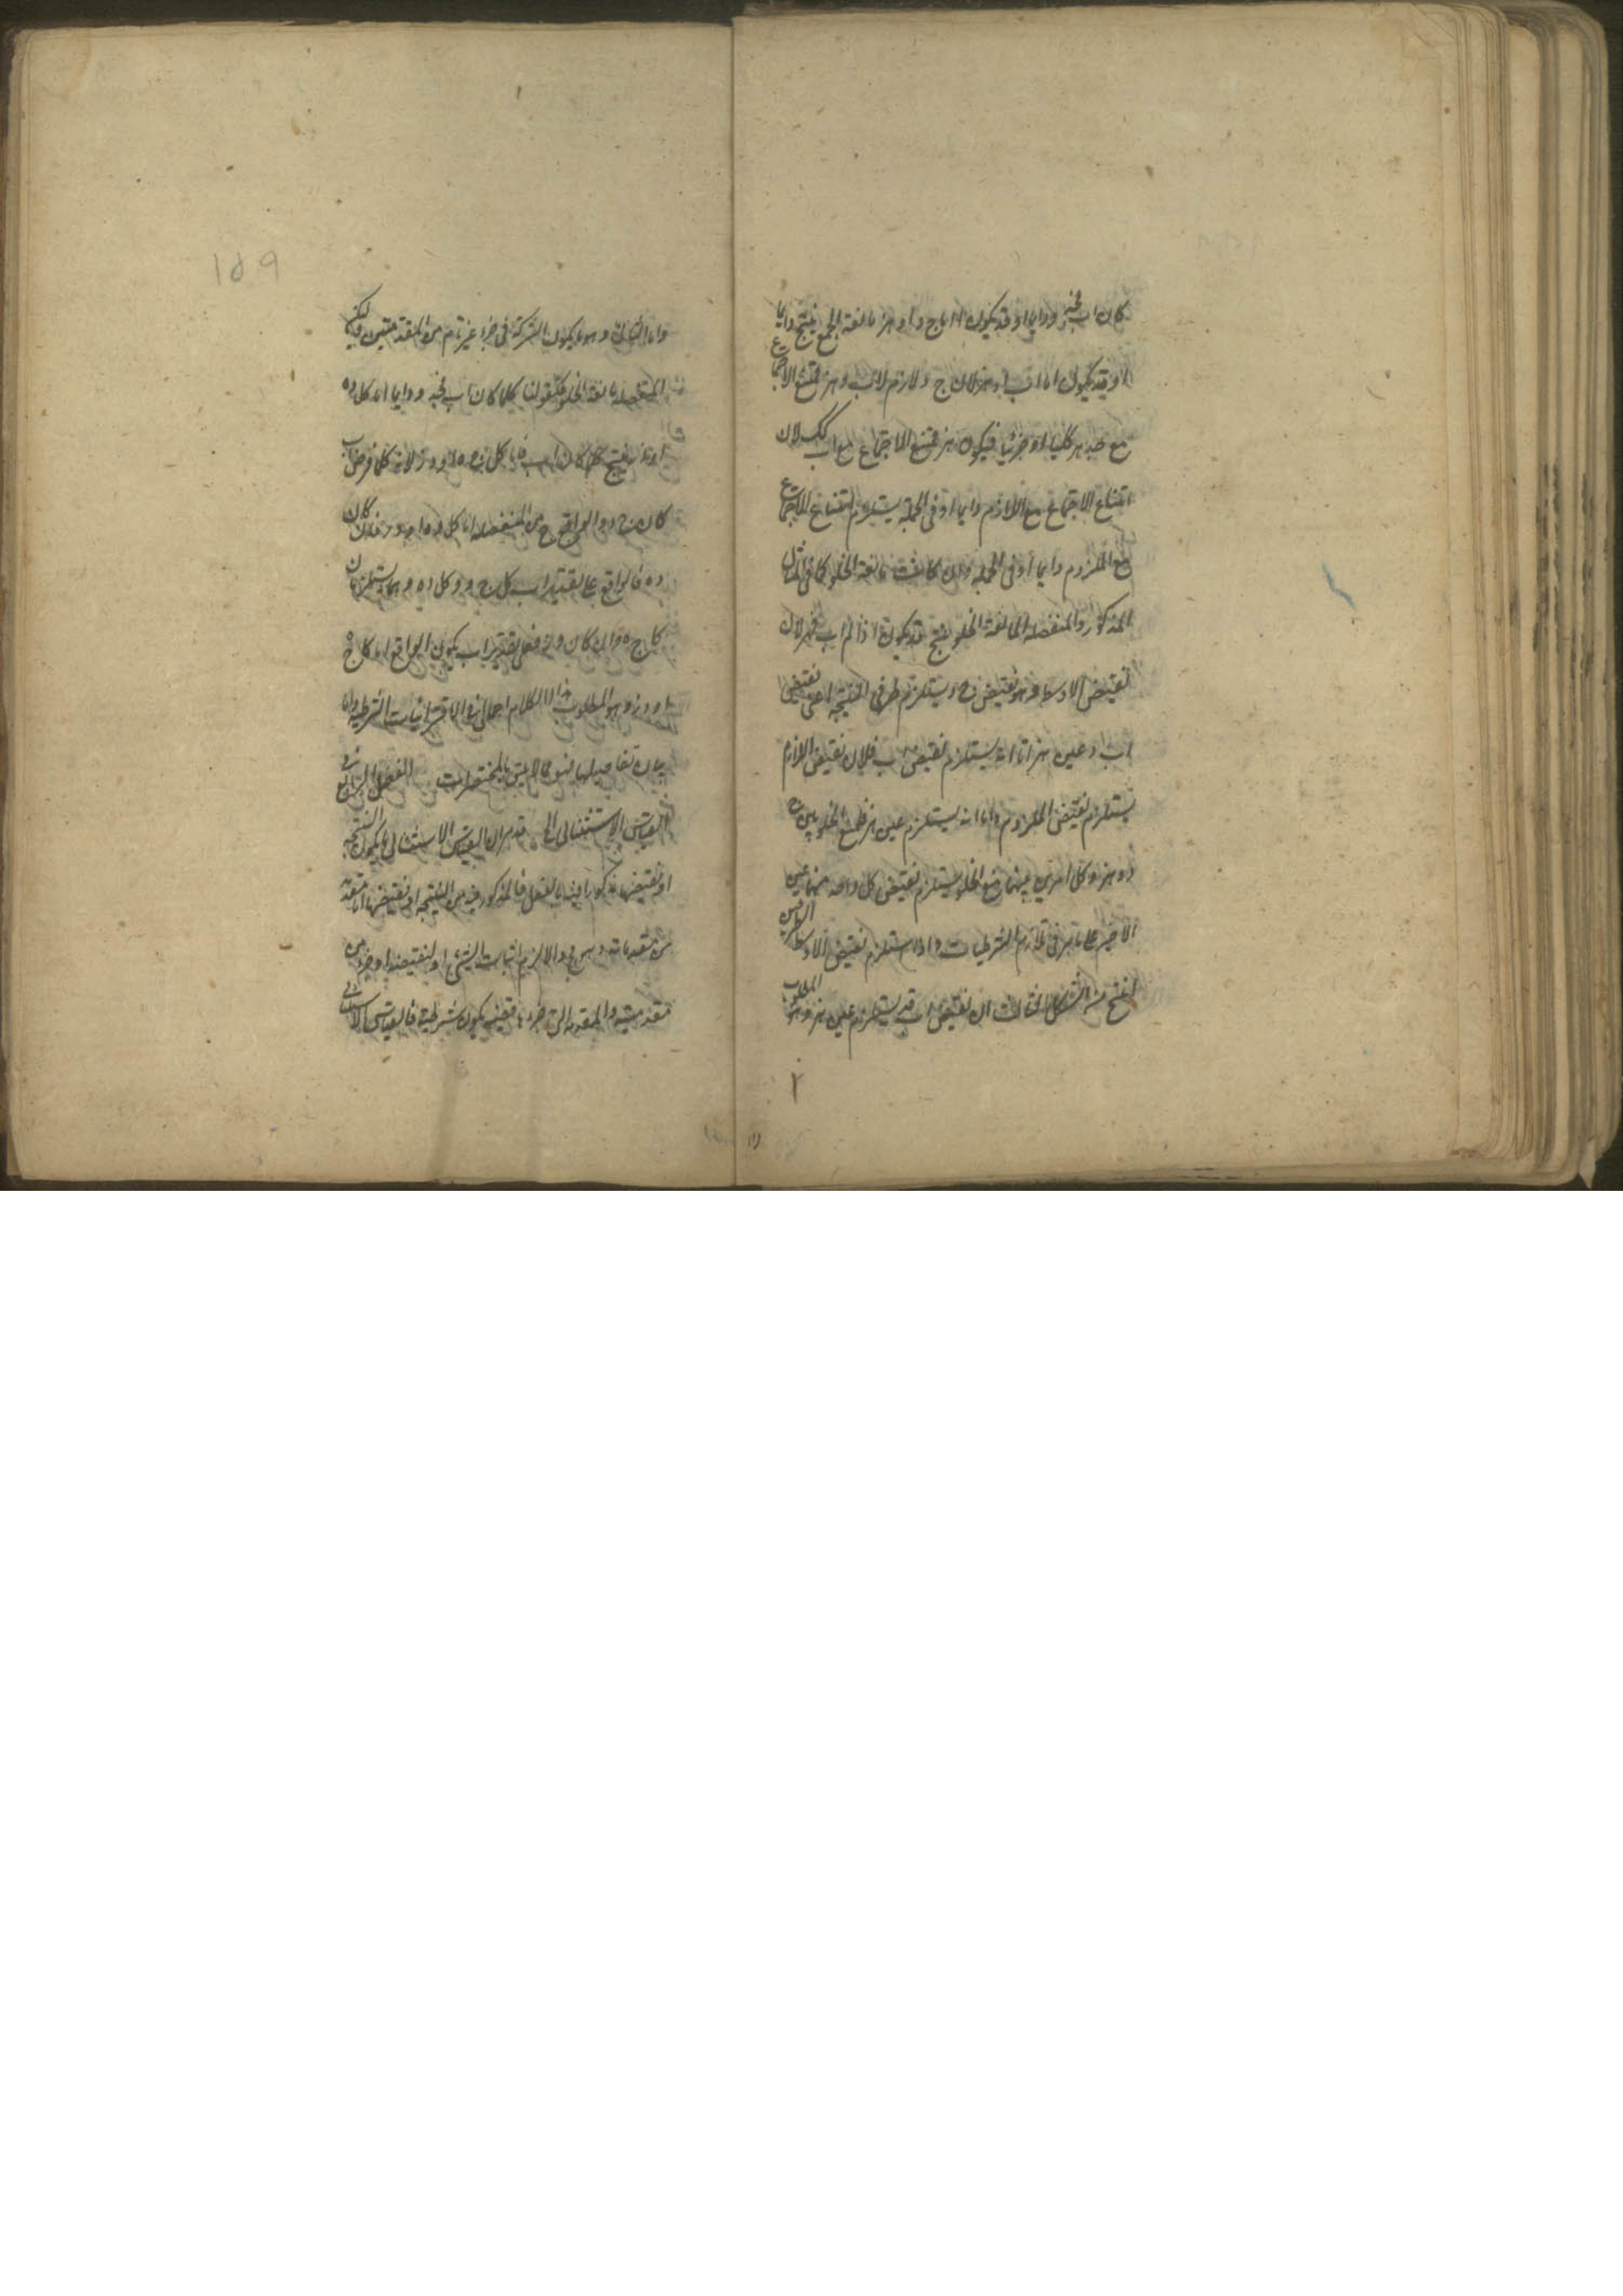 كان اب فجد ودايما او قد يكون اما ج د او هز مانعة الجمع ينتج دايما
او قد يكون اما اب او هز لان ج د لازم لاب و هز ممتنع الاجتماع
مع جد هز كليا او جزئيا فيكون هز ممتنع الاجتماع مع اب كك لان
امتناع الاجتماع مع اللازم دايما او فى الجملة يستلزم امتناع الاجتماع
مع الملزوم دايما او فى الجملة وان كانت مانعة الخلو كما فى المثال
المذكور والمنفصلة المانعة الخلو ينتج قد يكون اذا لم اب فهز لان
نقيض الاوسط وهو نقيض ج د يستلزم طرفى النتيجة اعنى نقيض
اب وعين هز اما انه يستلزم نقيض اب فلان نقيض اللازم
يستلزم نقيض الملزوم واما انه يستلزم عين هز فلمنع الخلو بين ج
د و هز وكل امرين بينهما منع الخلو يستلزم نقيض كل واحد منهما عين
الاخر على ما مر فى تلازم الشرطيات واذا استلزم نقيض الاوسط الطرفين
انتج من الشكل الثالث ان نقيض اب قد يستلزم عين هز وهو المطلوب
٢
١٥٩
واما الثالث وهو ما يكون الشركة فى جزء غير تام من المقدمتين فليكن
المنفصلة مانعة الخلو كقولنا كلما كان اب فجد ودايما اما كل ده
او وز ينتج كلما كان اب فاما كل ج ه او وز لانه كلما فرض اب
كان ج د والواقع ح من المنفصلة اما كل ده او وز فان كان
ده فالواقع على تقدير اب كل ج د وكل ده وهما يستلزمان
كل ج ه وان كان وز فعلى تقدير اب يكون الواقع اما كل ج ه
او وز وهو المطلوب هذا الكلام اجمالى فى الاقترانيات الشرطية واما
بيان تفاصيلها فهو مما لا يليق بالمختصرات الفصل الرابع فى
القياس الاستثنائى الى قد مر ان القياس الاستثنائى ما يكون النتيجة
او نقيضها مذكورا فيه بالفعل فالمذكور فيه من النتيجة او نقيضها اما مقدمة
من مقدماته وهو مح والا لزم اثبات الشئ او لنقيضه او جزء من
مقدمته والمقدمة التى جزءها قضية يكون شرطية فالقياس الاستثنائى